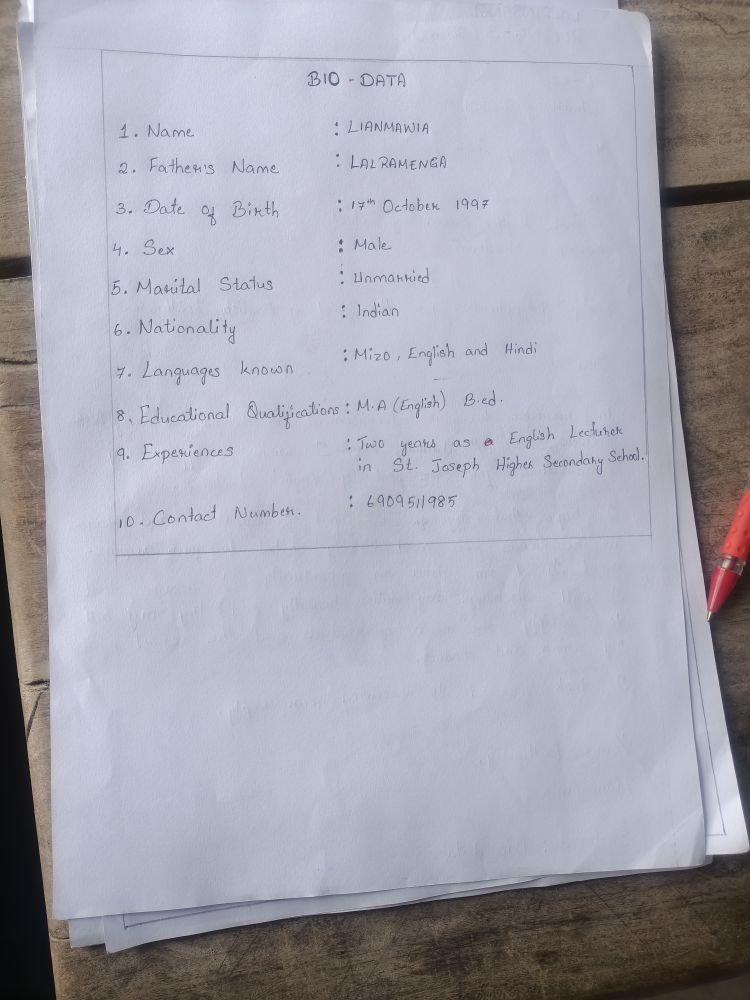 BIO - DATA
1. Name : LIANMAWIA
2. Father's Name : LALRAMENGA
3. Date of Birth : 17th October 1997
4. Sex : Male
5. Marital Status : Unmarried
6. Nationality : Indian
7. Languages known : Mizo, English and Hindi
8. Educational Qualifications : M.A (English) B.ed.
9. Experiences : Two years as a English Lecturer
in St. Joseph Higher Secondary School.
10. Contact Number. : 6909511985